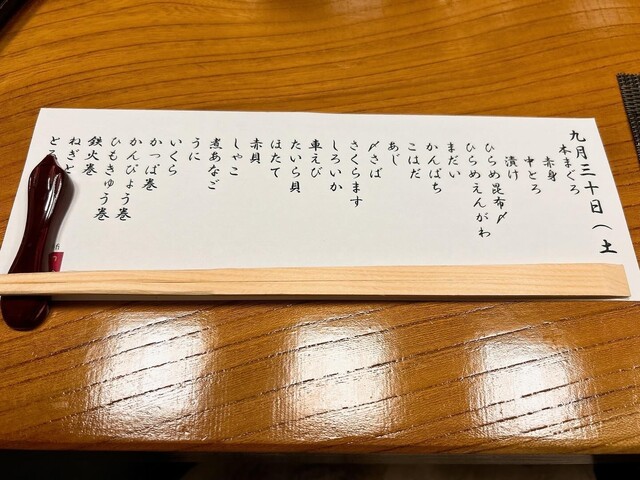 九月三十日（土
本まぐろ
赤身
中とろ
漬け
ひらめ昆布〆
ひらめえんがわ
まだい
かんぱち
こはだ
あじ
〆さば
さくらます
しろいか
車えび
たいら貝
ほたて
赤貝
しゃこ
煮あなご
うに
いくら
かっぱ巻
かんぴょう巻
ひもきゅう巻
鉄火巻
ねぎと
とろ